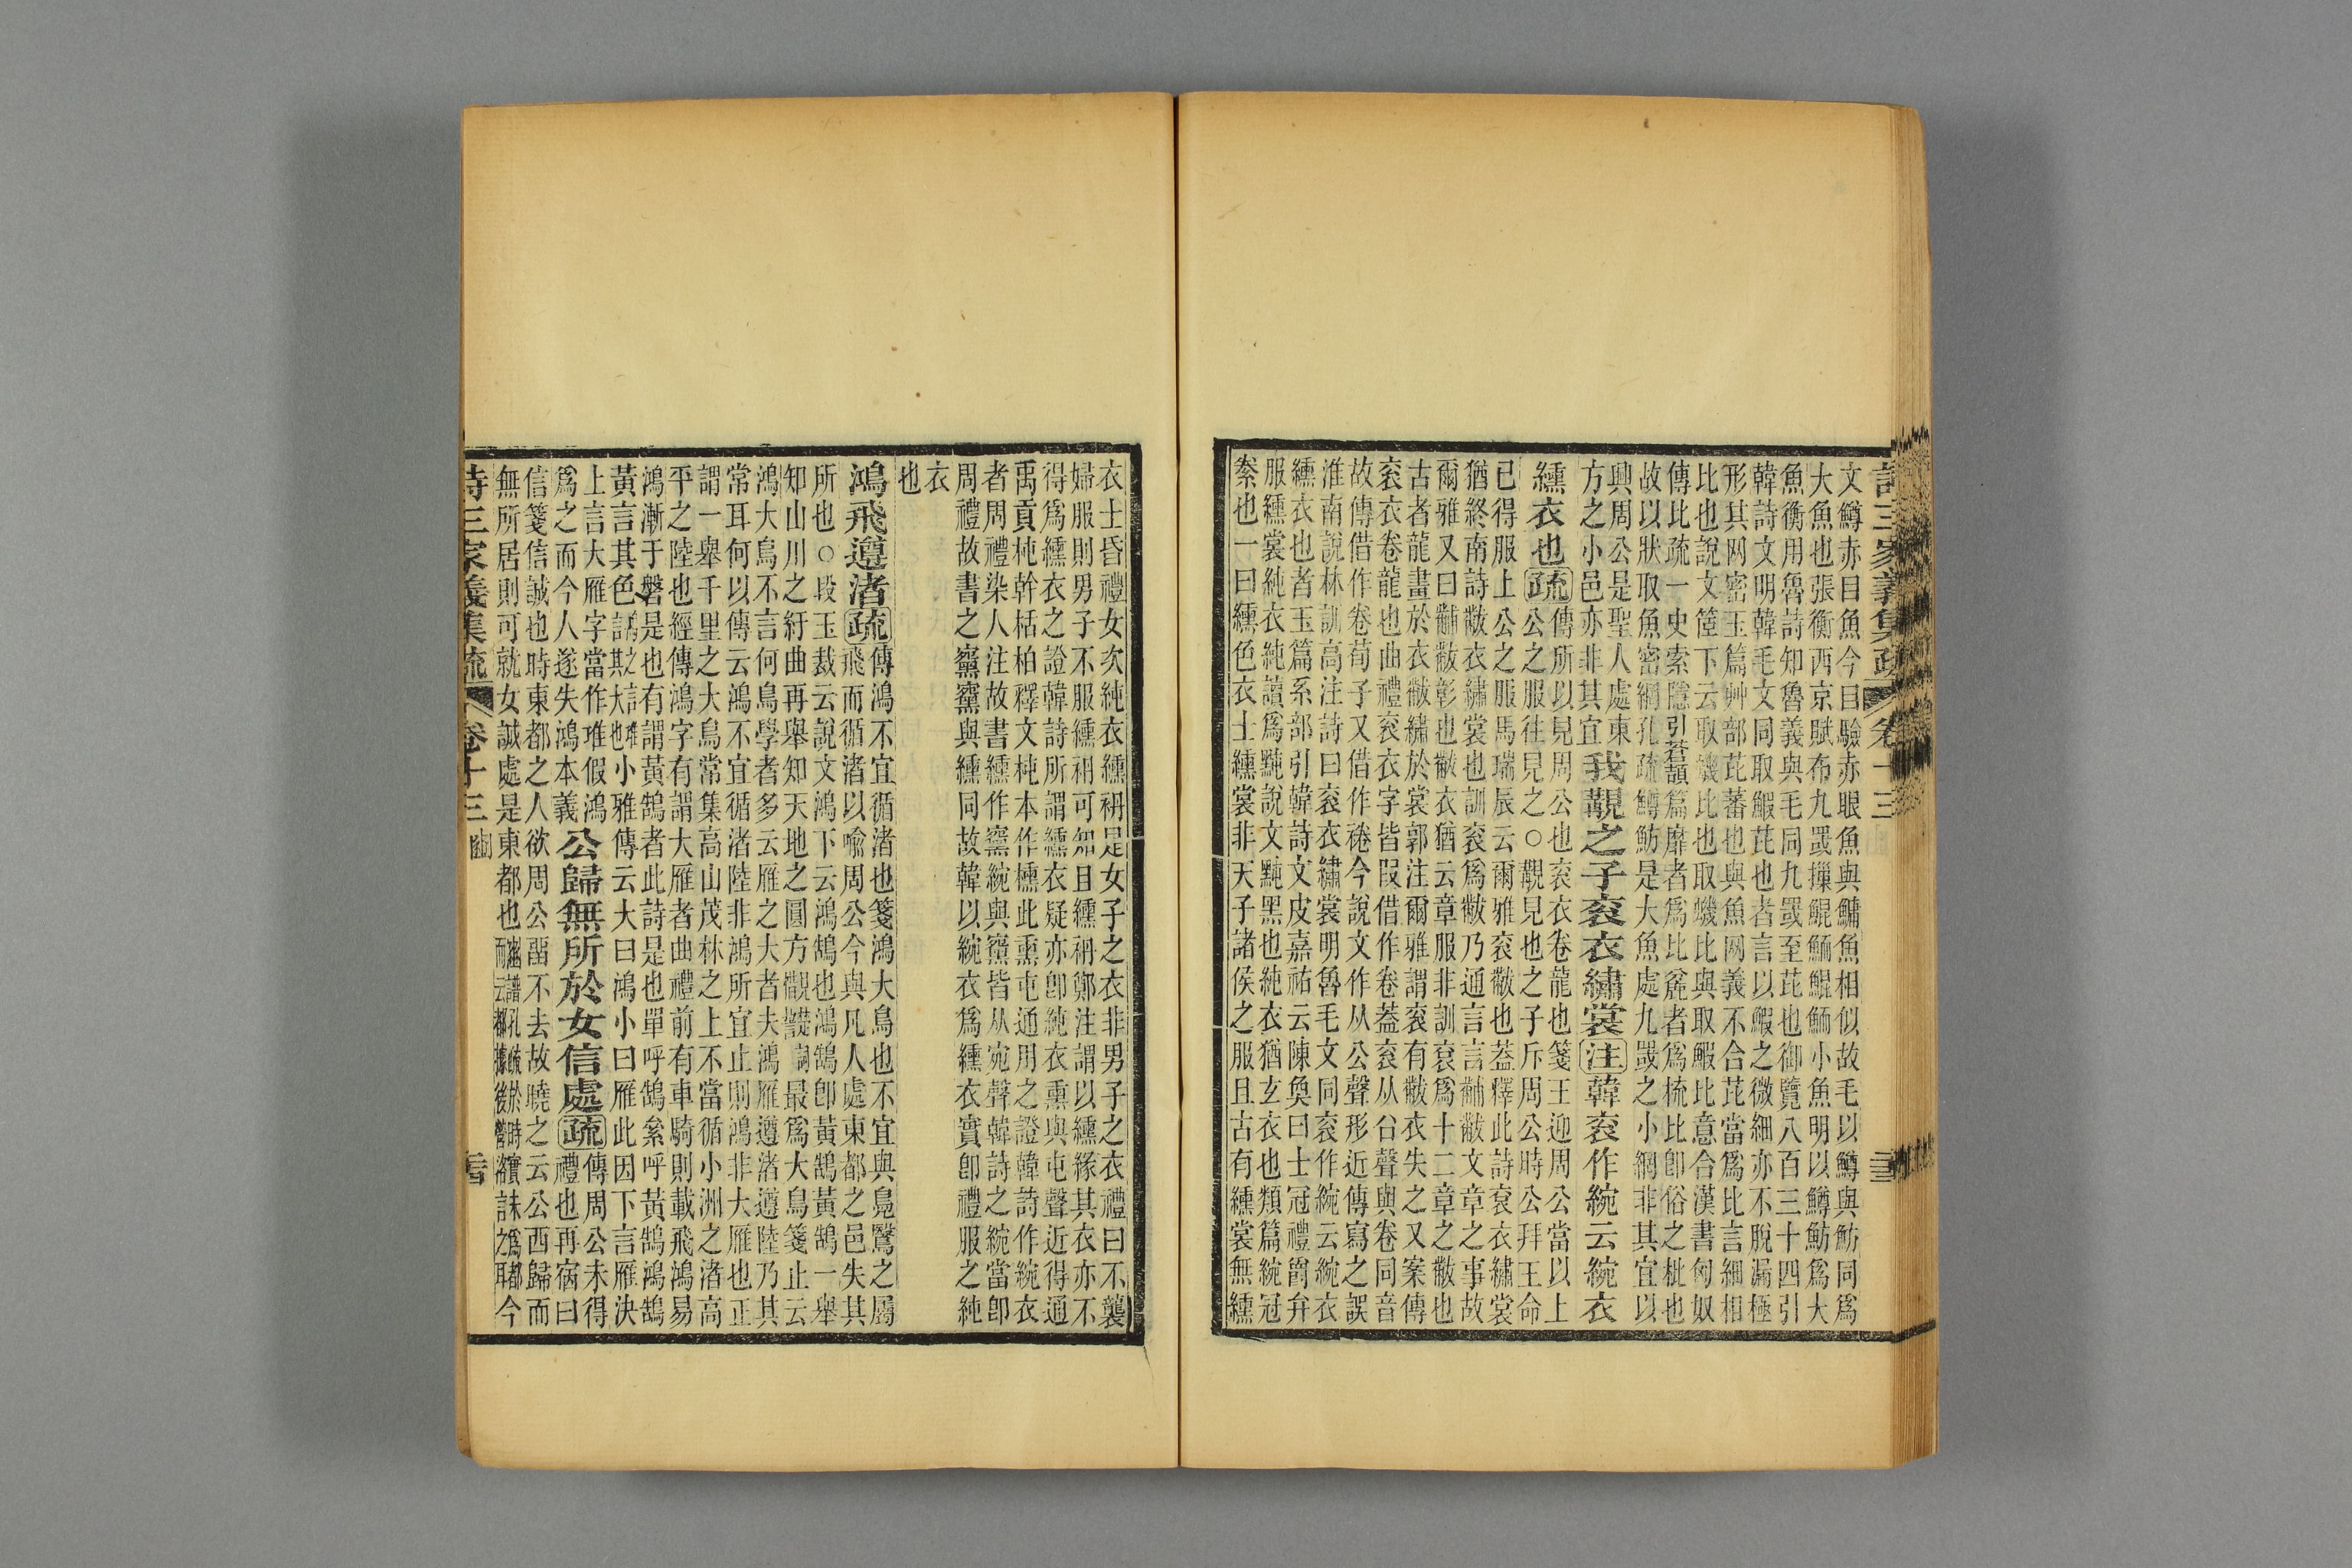 詩三家義集疏 卷十三
文鱒赤目魚今目驗赤眼魚與鱅魚相似故毛以鱒與魴同爲
大魚也張衡西京賦布九罭摷鯤鮞鯤鮞小魚明以鱒魴爲大
魚衡用魯詩知魯義與毛同九罭至芘也御覽八百三十四引
韓詩文明韓毛文同取鰕芘也者言以鰕之微細亦不脫漏極
形其网密玉篇艸部芘蕃也與魚网義不合芘當爲比言細相
比也說文筐下云取蟣比也取蟣比與取鰕比意合漢書匈奴
傳比疏一史索隱引蒼頡篇靡者爲比麄者爲梳比卽俗之枇也
故以狀取魚密網孔疏鱒魴是大魚處九罭之小網非其宜以
興周公是聖人處東
方之小邑亦非其宜我覯之子衮衣繡裳注韓衮作綩云綩衣
纁衣也疏傳所以見周公也衮衣卷龍也箋王迎周公當以上
公之服往見之○覯見也之子斥周公時公拜王命
已得服上公之服馬瑞辰云爾雅衮黻也蓋釋此詩衮衣繡裳
猶終南詩黻衣繡裳也訓衮爲黻乃通言言黼黻文章之事故
爾雅又曰黼黻彰也黻衣猶云章服非訓衮爲十二章之黻也
古者龍畫於衣黻繡於裳郭注爾雅謂衮有黻衣失之又案傳
衮衣卷龍也曲禮衮衣字皆叚借作卷蓋衮从㕣聲與卷同音
故傳借作卷荀子又借作裷今說文作从公聲形近傳寫之誤
淮南說林訓高注詩曰衮衣繡裳明魯毛文同衮作綩云綩衣
纁衣也者玉篇系部引韓詩文皮嘉祐云陳奐曰士冠禮爵弁
服纁裳純衣純讀爲黗說文黗黑也純衣猶玄衣也類篇綩冠
絭也一曰纁色衣士纁裳非天子諸侯之服且古有纁裳無纁
衣士昏禮女次純衣纁袡是女子之衣非男子之衣禮曰不襲
婦服則男子不服纁袡可知且纁袡鄭注謂以纁緣其衣亦不
得爲纁衣之證韓詩所謂纁衣疑亦卽純衣熏與屯聲近得通
禹貢杶幹栝柏釋文杶本作櫄此熏屯通用之證韓詩作綩衣
者周禮染人注故書纁作䵫綩與䵫皆从宛聲韓詩之綩當卽
周禮故書之䵫䵫與纁同故韓以綩衣爲纁衣實卽禮服之純
衣
也
鴻飛遵渚疏傳鴻不宜循渚也箋鴻大鳥也不宜與鳧鷖之屬
飛而循渚以喻周公今與凡人處東都之邑失其
所也○段玉裁云說文鴻下云鴻鵠也鴻鵠卽黃鵠黃鵠一舉
知山川之紆曲再舉知天地之圜方觀楚詞最爲大鳥箋止云
鴻大鳥不言何鳥學者多云雁之大者夫鴻雁遵渚遵陸乃其
常耳何以傳云鴻不宜循渚陸非鴻所宜止則鴻非大雁也正
謂一舉千里之大鳥常集高山茂林之上不當循小洲之渚高
平之陸也經傳鴻字有謂大雁者曲禮前有車騎則載飛鴻易
鴻漸于磐是也有謂黃鵠者此詩是也單呼鵠絫呼黃鵠鴻鵠
黃言其色其大也小雅傳云大曰鴻小曰雁此因下言雁決
上言大雁字當作堆假鴻
爲之而今人遂失鴻本義公歸無所於女信處疏傳周公未得
禮也再宿曰
信箋信誠也時東都之人欲周公畱不去故曉之云公西歸而
無所居則可就女誠處是東都也豳譜孔疏於時實未爲都而云都據後營洛言之耳今
詩三家義集疏 卷十三 豳